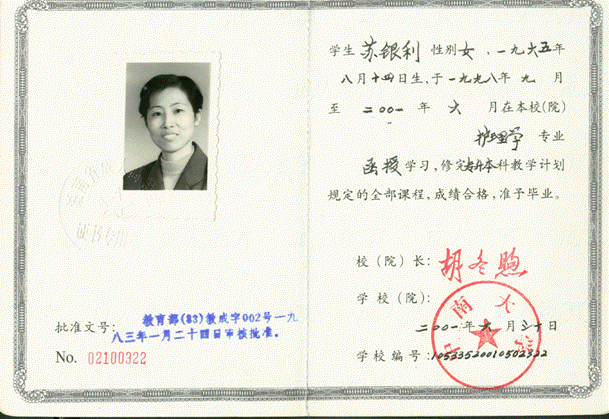 批准文号:
教育部(83)教成字002号一九
八三年一月二十四日审核批准.
No. 02100322
学生 苏银利 性别女,一九六五年
八月十四日生,于一九九八年九月
至二〇〇一年六月在本校(院)
护理学 专业
函授学习,修完专升本科教学计划
规定的全部课程,成绩合格,准予毕业。
校(院)长: 胡冬煦
学校(院):
二〇〇一年六月三十日
学校编号:10533520010502322